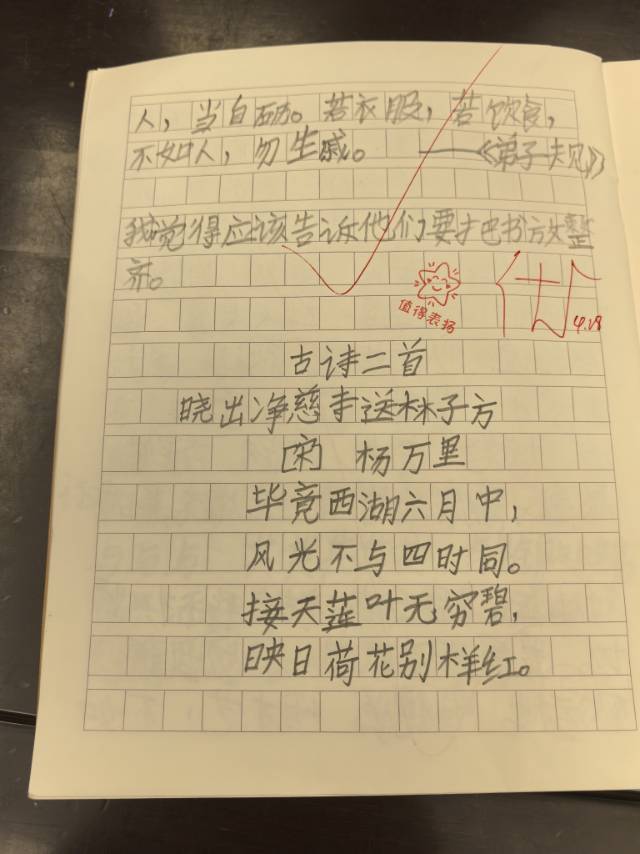 人，当自砺。若衣服，若饮食，
不如人，勿生戚。 ——《弟子规》
我觉得应该告诉他们要把书放整
齐。
值得表扬
优
4.18
古诗二首
晓出净慈寺送林子方
[宋] 杨万里
毕竟西湖六月中，
风光不与四时同。
接天莲叶无穷碧，
映日荷花别样红。